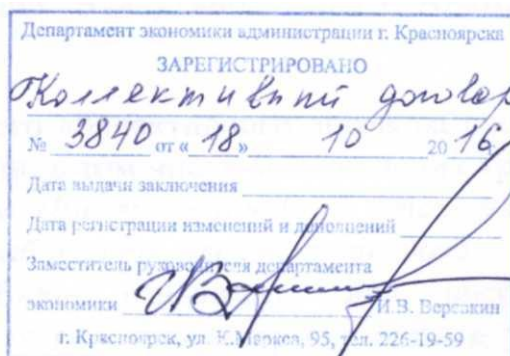 Департамент экономики администрации г. Красноярска
ЗАРЕГИСТРИРОВАНО
Коллективный договор
№ 3840 от «18» 10 2016
Дата выдачи заключения
Дата регистрации изменений и дополнений
Заместитель руководителя департамента
экономики И.В. Версакин
г. Красноярск, ул. К.Маркса, 95, тел. 226-19-59